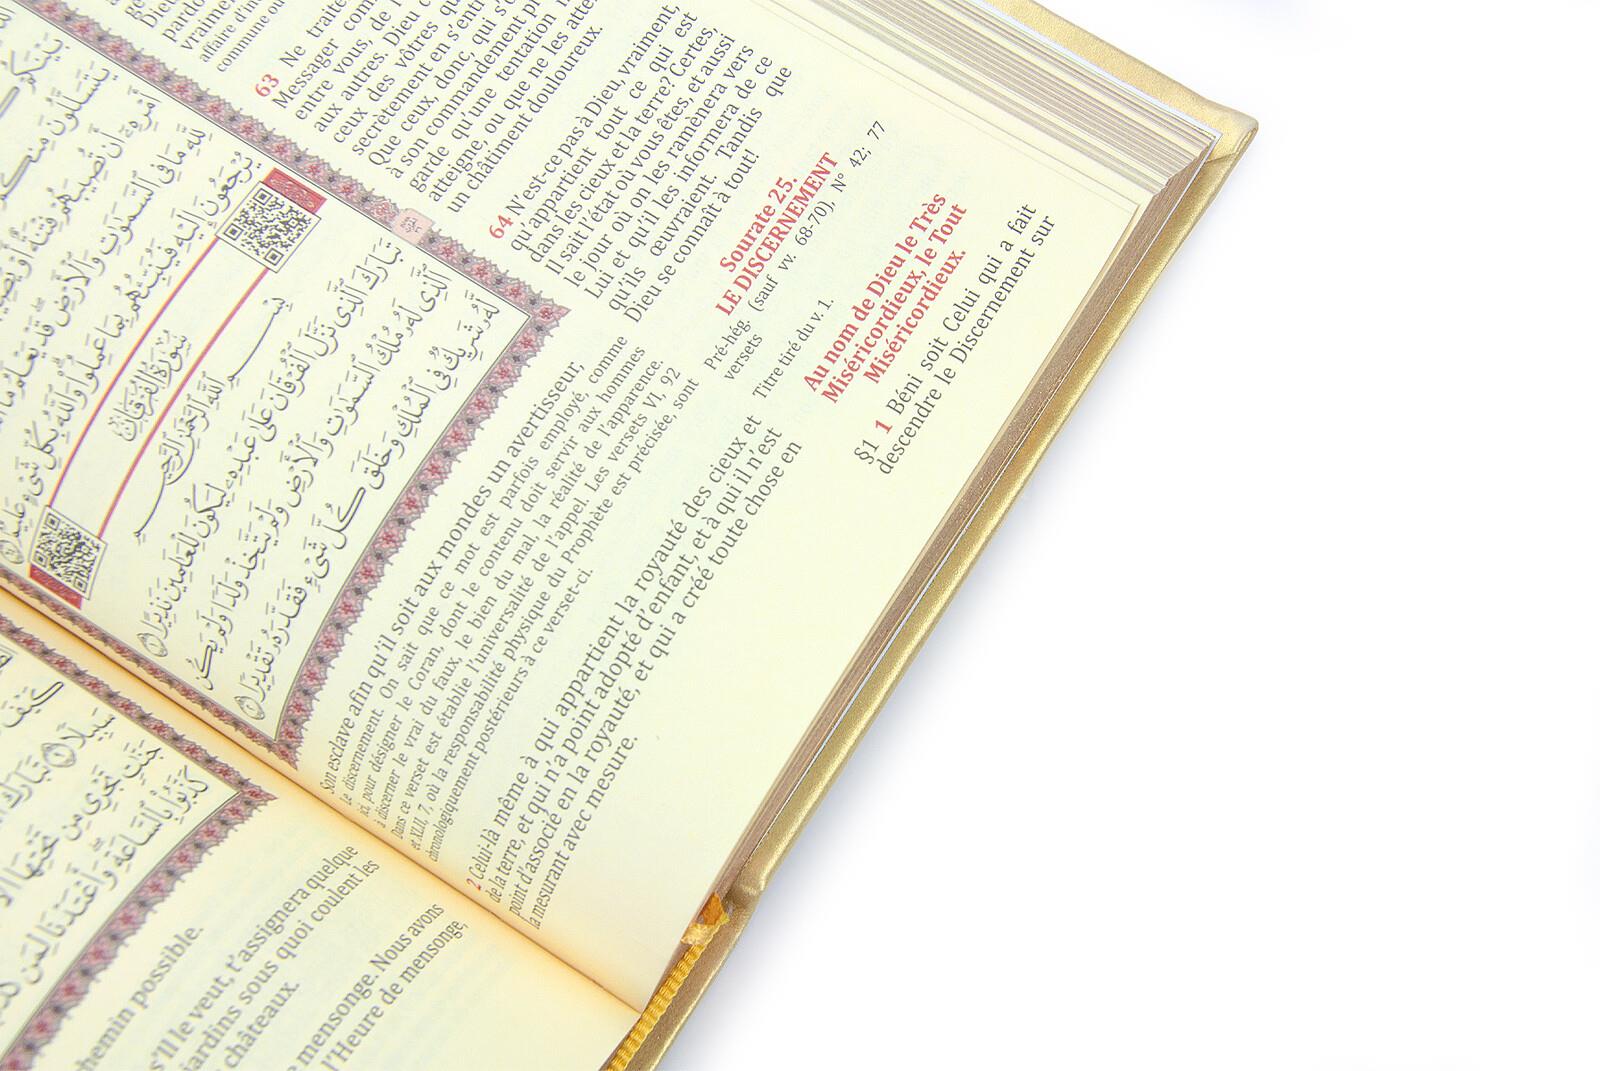 vraiment
affaire d'in
commune ou
63 Ne traite
Messager com
entre vous, de l
aux autres. Dieu c
ceux des vôtres qu
secrètement en s'entr
Que ceux, donc, qui s'
à son commandement pr
garde qu'une tentation n
atteigne, ou que ne les atte
un châtiment douloureux.
64 N'est-ce pas à Dieu, vraiment,
qu'appartient tout ce qui est
dans les cieux et la terre? Certes,
Il sait l'état où vous êtes, et aussi
le jour où on les ramènera vers
Lui et qu'il les informera de ce
qu'ils œuvraient. Tandis que
Dieu se connaît à tout!
Sourate 25.
LE DISCERNEMENT
Pré-hég. (sauf vv. 68-70), N° 42; 77
versets
Titre tiré du v. 1.
Au nom de Dieu le Très
Miséricordieux, le Tout
Miséricordieux.
§1 1 Béni soit Celui qui a fait
descendre le Discernement sur
Son esclave afin qu'il soit aux mondes un avertisseur,
Le discernement. On sait que ce mot est parfois employé, comme
ici, pour désigner le Coran, dont le contenu doit servir aux hommes
à discerner le vrai du faux, le bien du mal, la réalité de l'apparence.
Dans ce verset est établie l'universalité de l'appel. Les versets VI, 92
et XLII, 7, où la responsabilité physique du Prophète est précisée, sont
chronologiquement postérieurs à ce verset-ci.
2 Celui-là même à qui appartient la royauté des cieux et
de la terre, et qui n'a point adopté d'enfant, et à qui il n'est
point d'associé en la royauté, et qui a créé toute chose en
la mesurant avec mesure.
لِلَّهِ مَا فِي ٱلسَّمَٰوَٰتِ وَٱلْأَرْضِ قَدْ يَعْلَمُ مَا
يُرْجَعُونَ إِلَيْهِ فَيُنَبِّئُهُم بِمَا عَمِلُوا۟ وَٱللَّهُ بِكُلِّ شَىْءٍ عَلِيمٌ
سُورَةُ الفُرْقَانِ
بِسْمِ ٱللَّهِ ٱلرَّحْمَٰنِ ٱلرَّحِيمِ
تَبَارَكَ ٱلَّذِى نَزَّلَ ٱلْفُرْقَانَ عَلَىٰ عَبْدِهِۦ لِيَكُونَ لِلْعَٰلَمِينَ نَذِيرًا ١
ٱلَّذِى لَهُۥ مُلْكُ ٱلسَّمَٰوَٰتِ وَٱلْأَرْضِ وَلَمْ يَتَّخِذْ وَلَدًا وَلَمْ يَكُن
لَّهُۥ شَرِيكٌ فِى ٱلْمُلْكِ وَخَلَقَ كُلَّ شَىْءٍ فَقَدَّرَهُۥ تَقْدِيرًا ٢
سَبِيلًا ٩ تَبَارَكَ
جَنَّٰتٍ تَجْرِى مِن تَحْتِهَا
كَذَّبُوا۟ بِٱلسَّاعَةِ وَأَعْتَدْنَا لِمَن
hemin possible.
s'Il le veut, t'assignera quelque
jardins sous quoi coulent les
châteaux.
mensonge. Nous avons
l'Heure de mensonge,